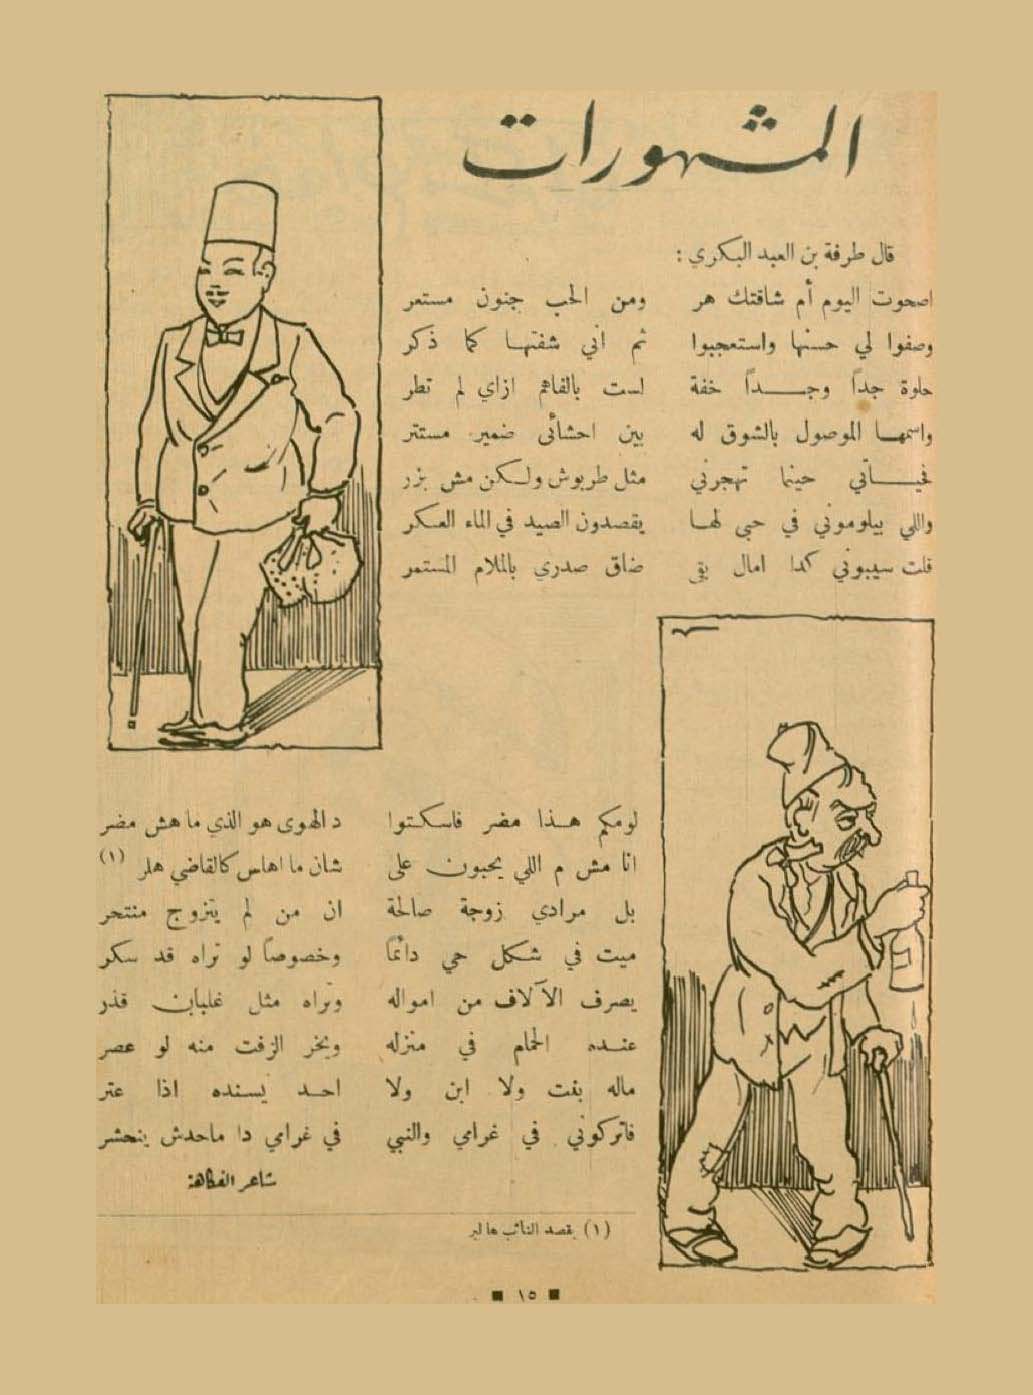 المشهورات
قال طرفة بن العبد البكري :
اصحوت اليوم أم شاقتك هر ومن الحب جنون مستعر
وصفوا لي حسنها واستعجبوا ثم اني شفتها كما ذكر
حلوة جداً وجداً خفة لست بالفاهم ازاي لم تطر
واسمها الموصول بالشوق له بين احشائى ضمير مستتر
فحياتي حينما تهجرني مثل طربوش ولكن مش بزر
واللي بيلوموني في حبى لها يقصدون الصيد في الماء العكر
قلت سيبوني كدا امال بقى ضاق صدري بالملام المستمر
لومكم هذا مضر فاسكتوا د الهوى هو الذي ما هش مضر
انا مش م اللي يحبون على شان ما اهاس كالقاضي هلر (١)
بل مرادي زوجة صالحة ان من لم يتزوج منتحر
ميت في شكل حي دائما وخصوصاً لو تراه قد سكر
يصرف الآلاف من امواله وتراه مثل غلبان قذر
عنده الحمام في منزله ويخر الزفت منه لو عصر
ماله بنت ولا ابن ولا احد يسنده اذا عتر
فاتركوني في غرامي والنبي في غرامي دا ماحدش ينحشر
شاعر الفكاهة
(١) يقصد النائب هالبر
١٥